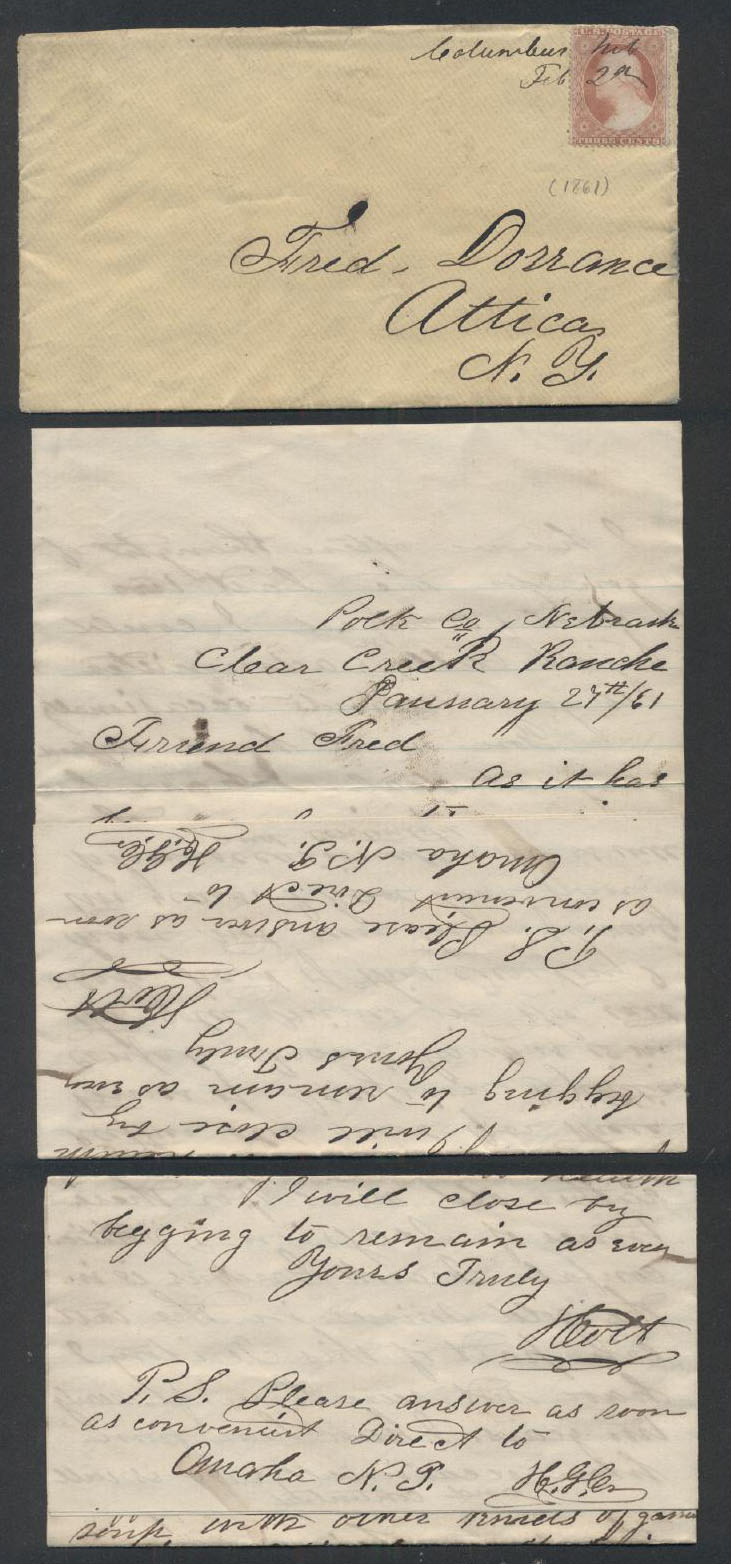 Columbus Neb
Feb 2d
U.S. POSTAGE
THREE CENTS
(1861)
Fred. Dorrance
Attica
N. Y.
Polk Co, Nebrask
Clear Creek Ranche
Jaunary 27th/61
Friend Fred
as it has
I will close by
begging to remain as ever
Yours Truly
Holt
P.S. Please answer as soon
as convenient Direct to
Omaha N.T.
I will close by
begging to remain as ever
Yours Truly
Holt
P.S. Please answer as soon
as convenient Direct to
Omaha N.T.
soup, with other kinds of game